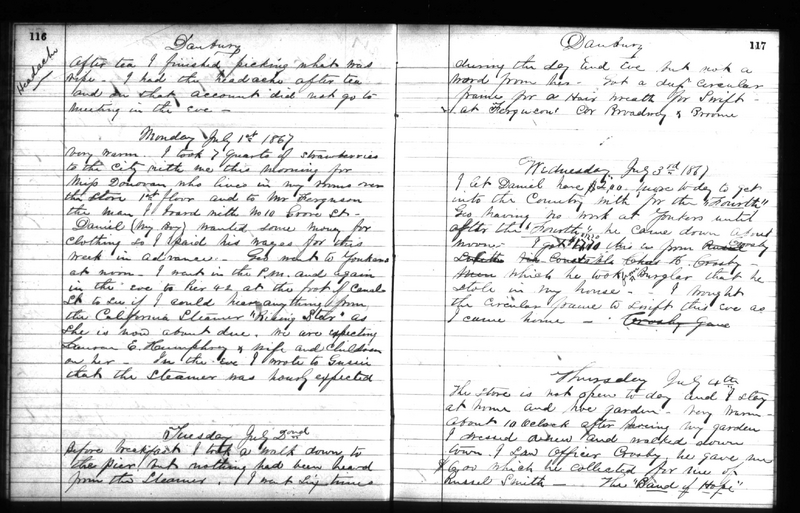 116
Headache
Danbury
After tea I finished picking what was
ripe. I had the headache after tea
and on that account did not go to
meeting in the eve —
Monday July 1st 1867
Very warm. I took 7 quarts of strawberries
to the City with me this morning for
Miss Donovan who lives in my rooms over
the Store 1st floor and to Mr Ferguson
the man I board with No 10 St-
Daniel (my boy) wanted some money for
clothing so I paid his wages for this
week in advance:- Geo went to Yonkers
at noon. I went in the P.M. and again
in the eve to Pier 42 at the foot of Canal
St to see if I could hear anything from
the California Steamer "Rising Star" as
She is now about due. We are expecting
E. Humphrey & wife and children
on her. In the Eve I wrote to Gussie
that the Steamer was hourly expected
Tuesday July 2ond
Before breakfast I took a walk down to
the Pier but nothing had been heard
from the Steamer. I went six times
117
Danbury
during the day and Eve but not a
word from her. Got a deep Circular
frame for a Hair wreath for Swift-
at Ferguson's Cor Broadway & Broome
Wednesday July 3rd 1867
I let Daniel have $2,00 more to day to get
into the Country with for the "Fourth"
Geo having no work at Yonkers until
after the "Fourth" he came down about
noon. I got this is from Crosby
Constable Chas B. Crosby
which he took of Burglar that he
stole in my house I brought
the Circular frame to Swift this eve as
I came home — Crosby gave
Thursday July 4th
The Store is not open to day and I stay
at home and hoe garden. Very warm-
About 10 oclock after hoeing my garden
I dressed and walked down
town. I saw Officer Crosby he gave me
which he collected for me of
Russel Smith — The "Band of Hope"